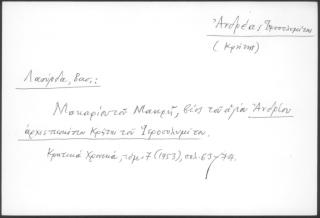 Ἀνδρέας Ἱεροσολυμίτης
(Κρήτης)
Λαούρδα, Βασ.:
Μακαρίου τοῦ Μακρῆ, βίος τοῦ ἁγίου Ἀνδρέου
ἀρχιεπισκόπου Κρήτης τοῦ Ἱεροσολυμίτου.
Κρητικά Χρονικά, τόμ. 7 (1953), σελ. 63-74.